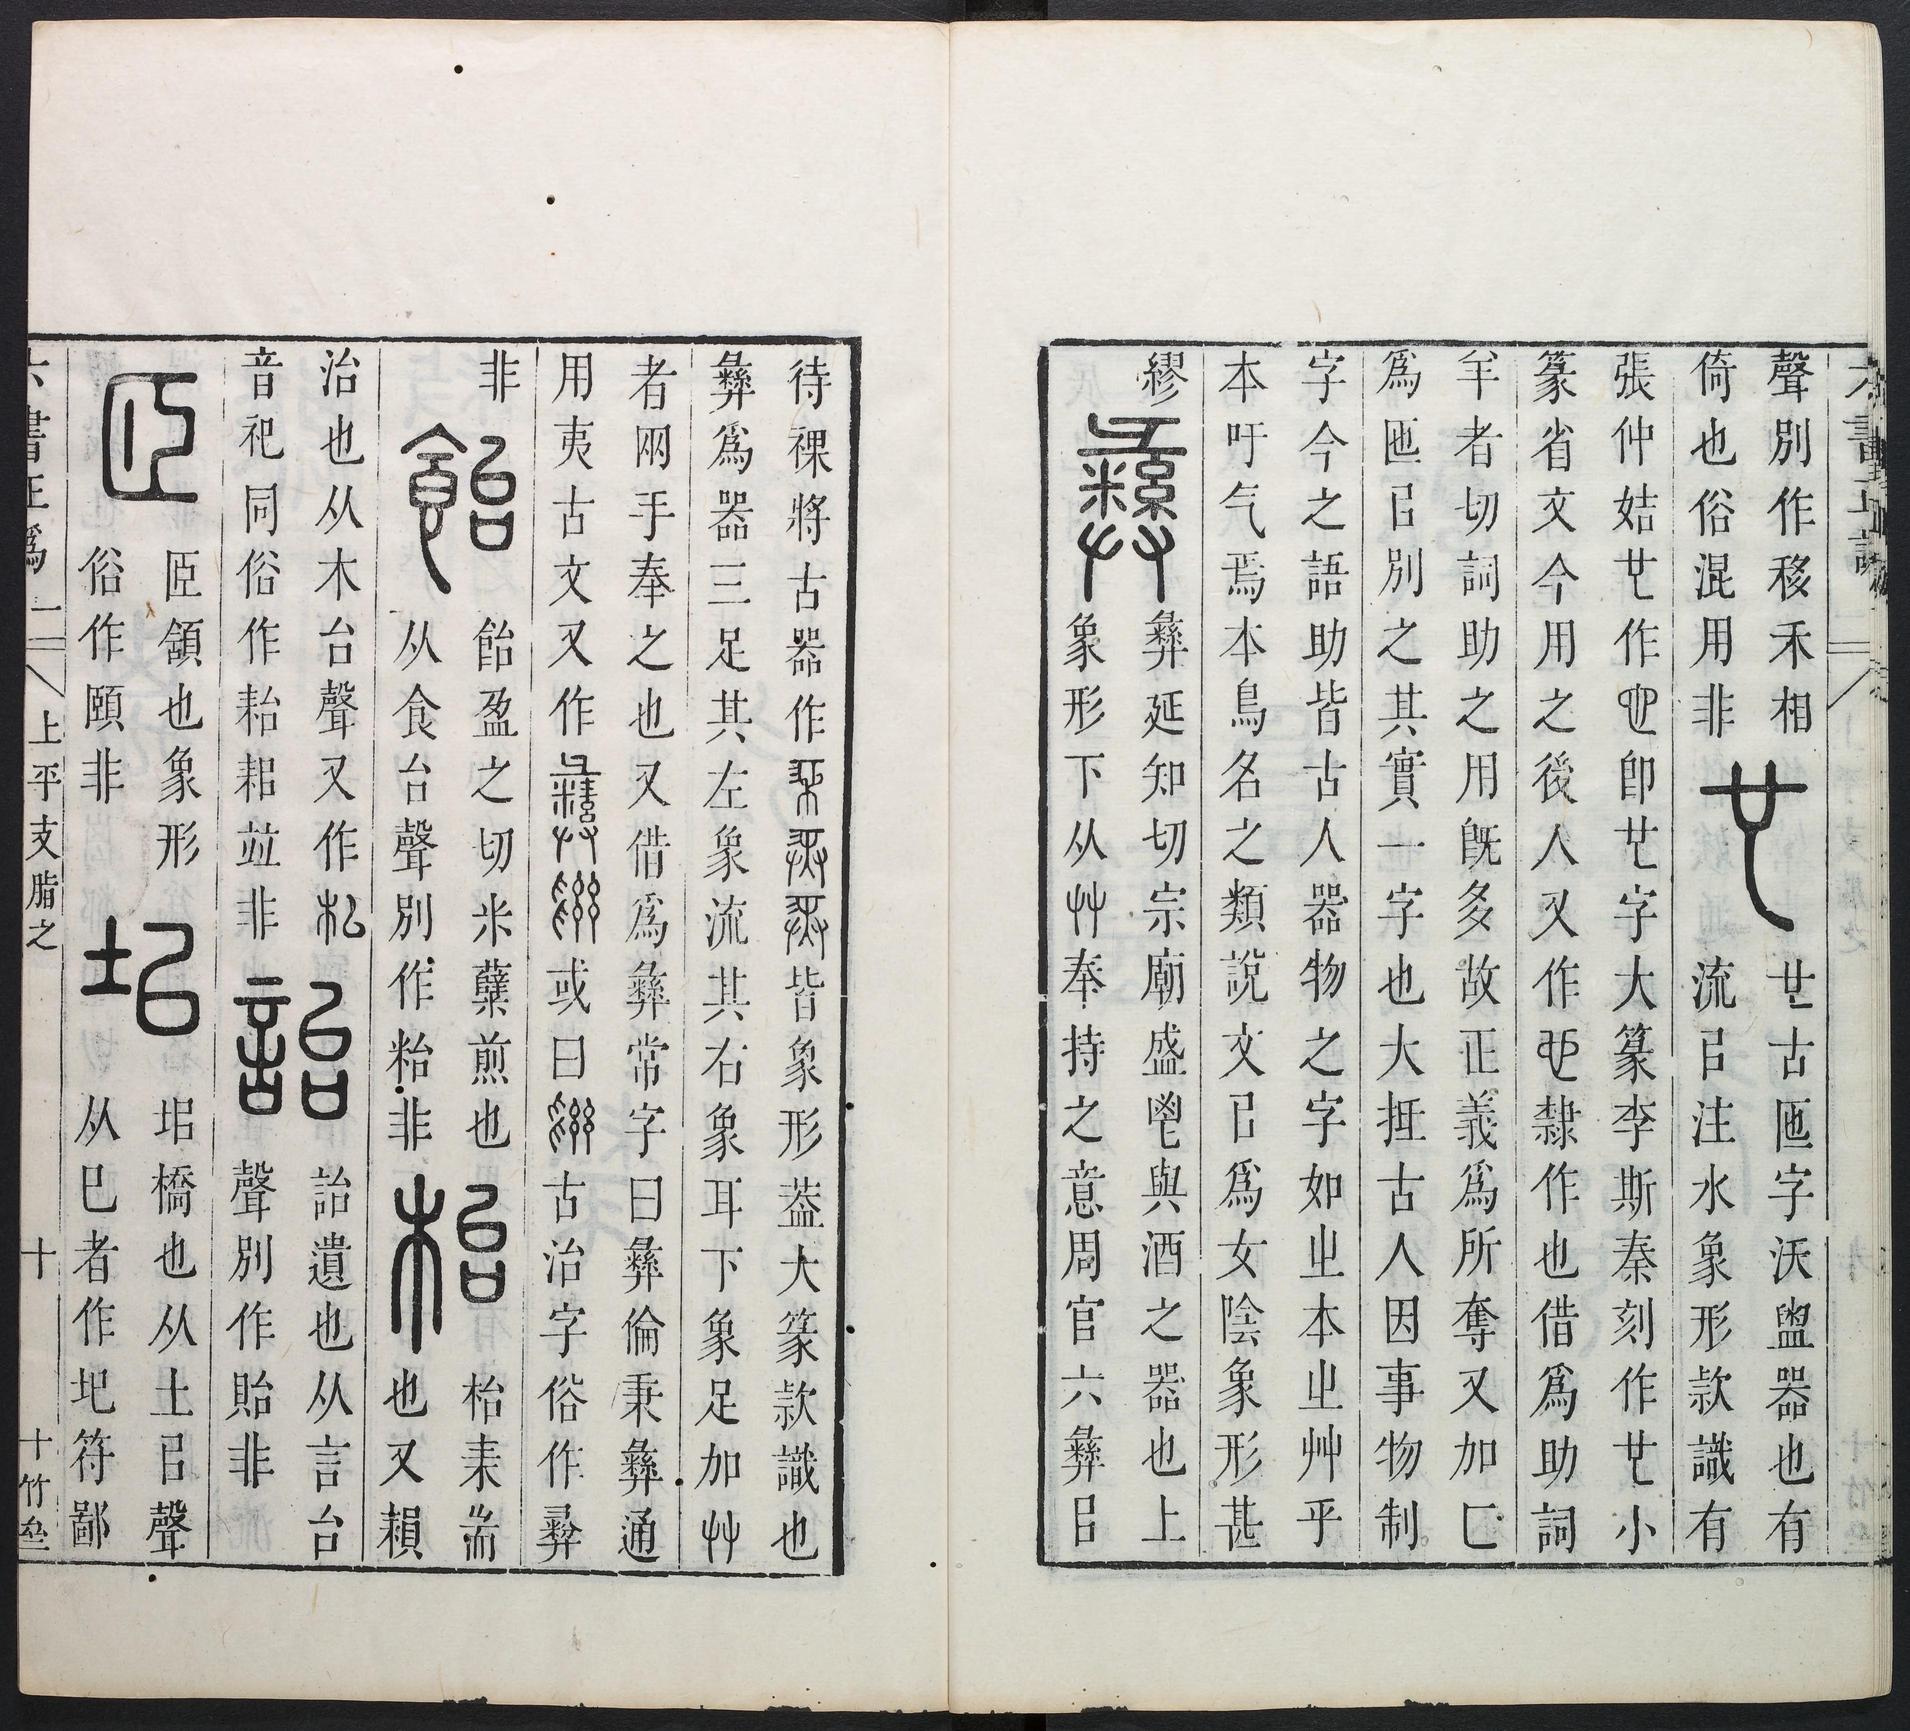 聲別作移禾相
倚也俗混用非
也
𠃟古匜字沃盥器也有
流㠯注水象形款識有
張仲姞𠃟作即𠃟字大篆李斯秦刻作𠃟小
篆省文今用之後人又作隸作也借爲助詞
羊者切詞助之用旣多故正義爲所奪又加匚
爲匜㠯別之其實一字也大抵古人因事物制
字今之語助皆古人器物之字如㞢本㞢艸乎
本吁气焉本鳥名之類說文㠯爲女陰象形甚
繆
彝
彝延知切宗廟盛鬯與酒之器也上
象形下从廾奉持之意周官六彝㠯
待祼將古器作皆象形葢大篆款識也
彝爲器三足其左象流其右象耳下象足加廾
者兩手奉之也又借爲彝常字曰彝倫秉彝通
用夷古文又作或曰古治字俗作彛
非
飴
飴盈之切米糵煎也
从食台聲別作粭非
枱
枱耒耑
也又䪼
治也从木台聲又作䇣
音祀同俗作耛耜竝非
詒
詒遺也从言台
聲別作貽非
𦣞
𦣞頷也象形
俗作頤非
圯
圯橋也从土㠯聲
从巳者作圮符鄙
六書正譌
一
上平支脂之
十
十竹垒